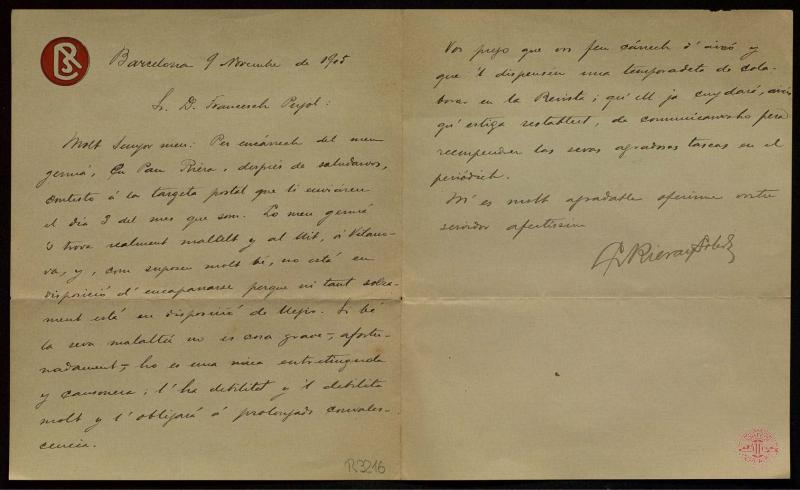 Barcelona 9 Novembre de 1905
Sr. D. Francesch Pujól:
Molt Senyor meu: Per encárrech del meu
germá, En Pau Riera, després de saludarvos,
contesto á la targeta postal que li enviáreu
el dia 3 del mes que som. Lo meu germá
's trova realment malalt y al llit, á Vilano-
va, y, com suposeu molt bé, no está en
disposició d' encaparrarse perque ni tant sola-
ment está en disposició de llegir. Si bé
la seva malaltía no es cosa grave, afortu-
nadament, ho es una mica entretinguda
y cansonera; l' ha debilitat y 'l debilita
molt y l' obligará á prolongada convales-
cencia.
Vos prego que vos feu cárrech d' aixó y
que 'l dispenséu una temporadeta de cola-
borar en la Revista; qu' ell ja cuydará, aixís
qu' estiga restablert, de comunicarvosho pera
rempendre las sevas agradosas tascas en el
periódich.
M' es molt agradable oferirme vostre
servidor afectíssim
Riera y Soler
R3216